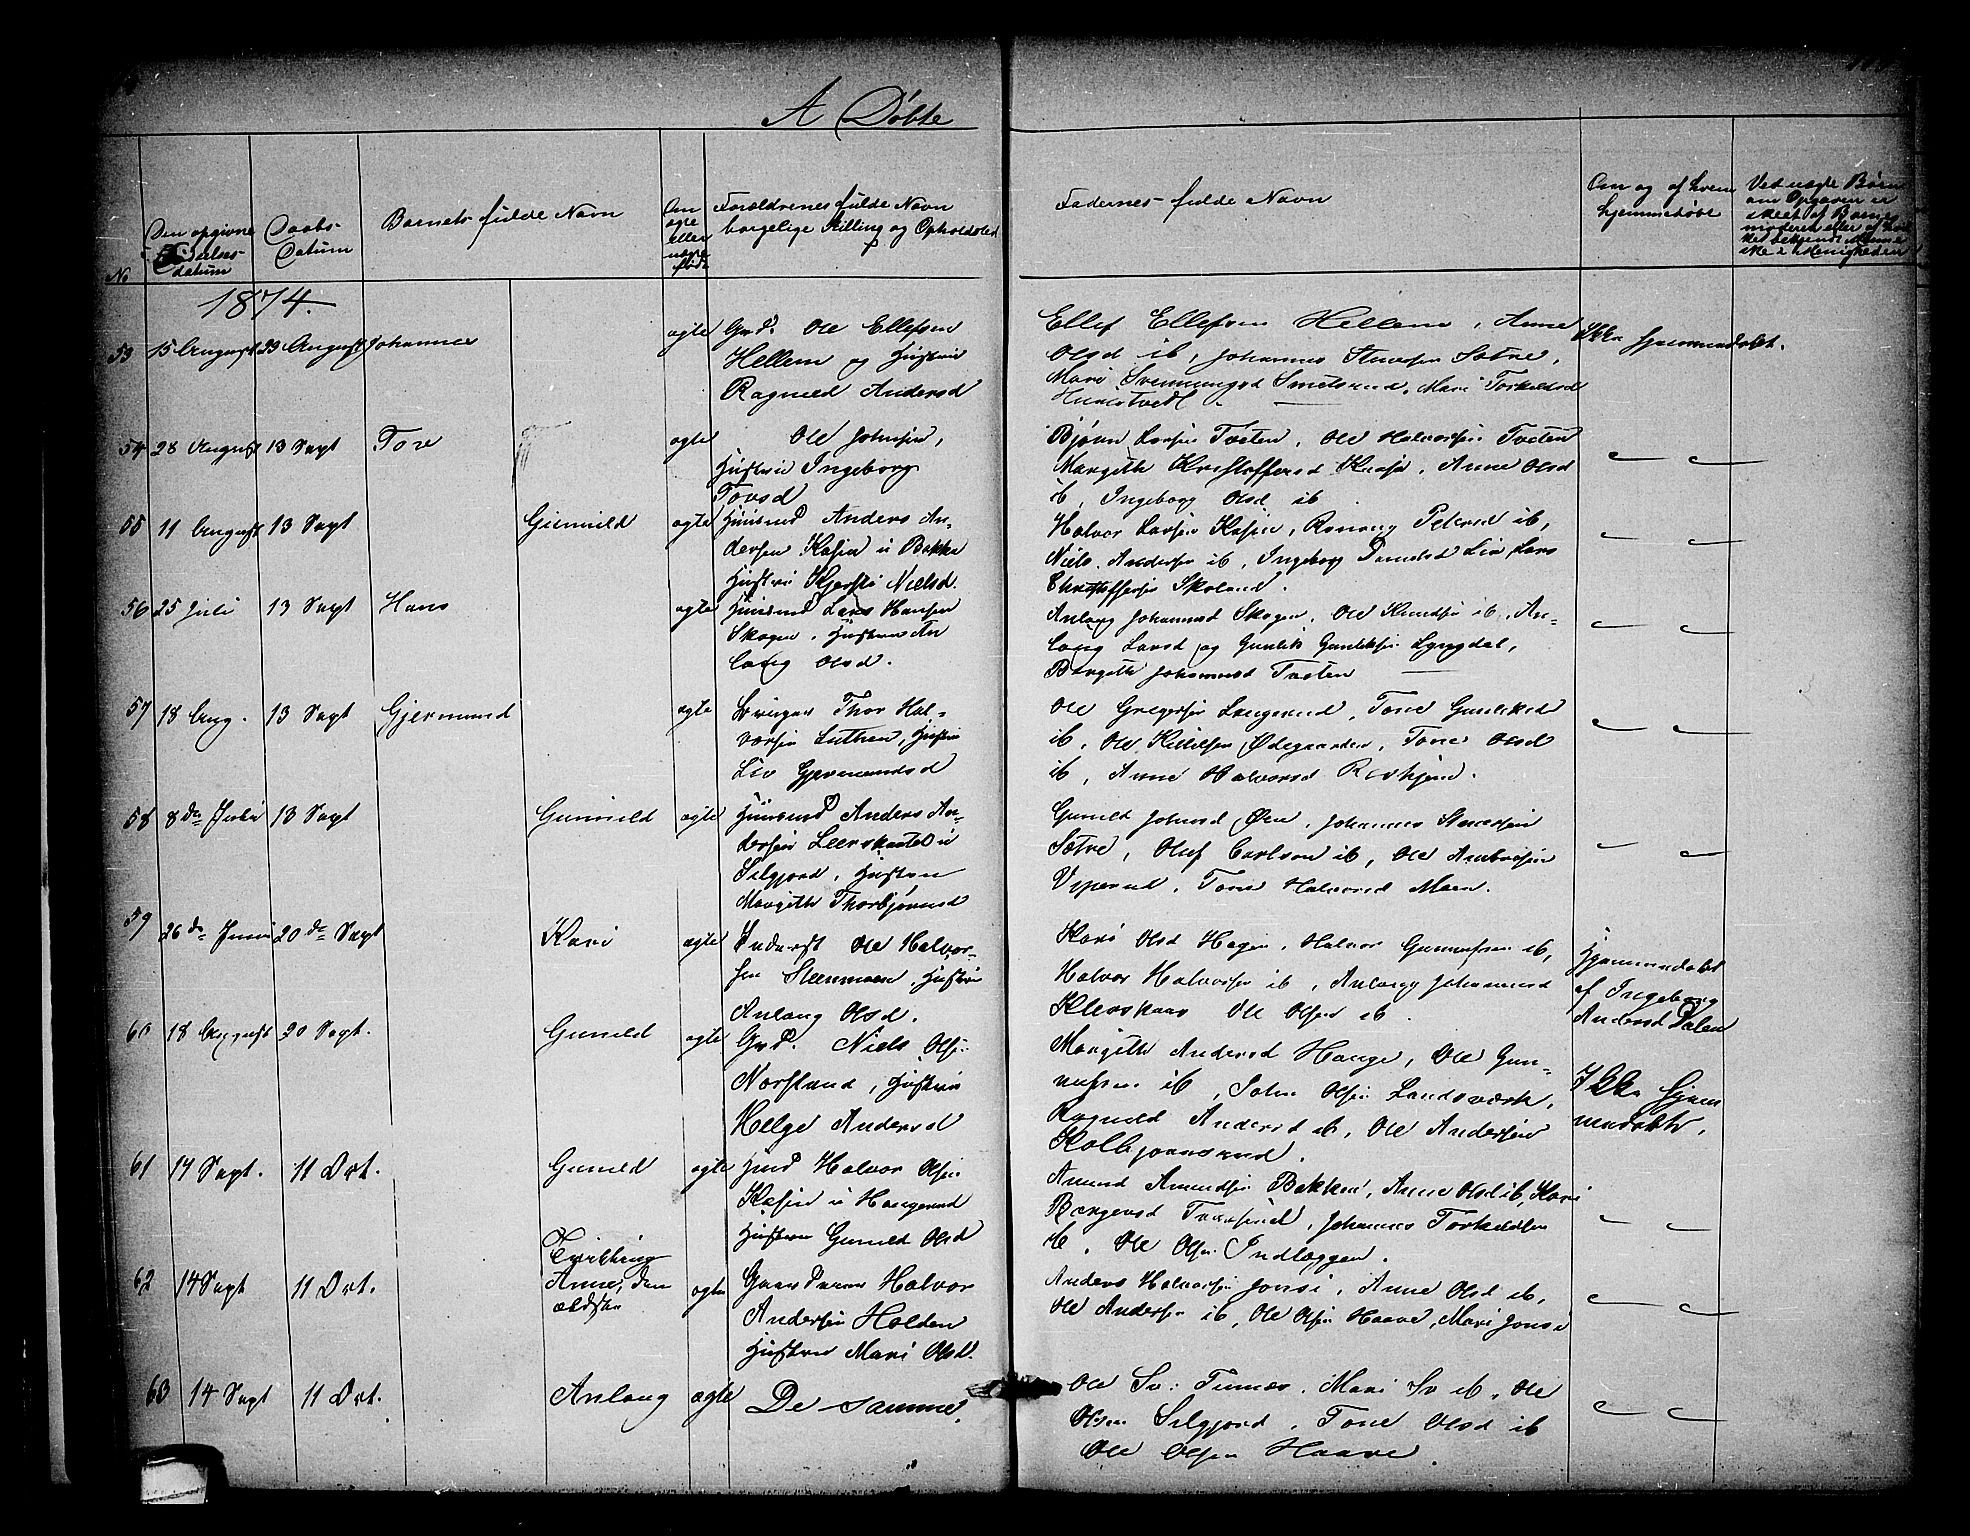 A Døbte
No
Den opgivne Fødselsdatum
Daabs-Datum
Barnets fulde Navn
Om ægte eller uægte født
Forældrenes fulde Navn borgelige Stilling og Opholdsted
Faddernes fulde Navn
Om og af hvem hjemmedøbt
Ved uægte Børn om Opgaven er skeet af Barnemoderen eller af
1874.
53 15 August 23 August Johannes ægte Grd. Ole Ellefsen
Hellem og Hustru
Ragnild Andersd
Ellef Ellefsen Hellem, Anne
Olsd ib, Johannes Sætre,
Mari Svennungsd Mari Torkildsd
Ikke hjemmedøbt.
54 28 August 13 Sept Tore ægte Ole Johnsen,
Hustru Ingeborg
Torsd
Bjørn Larsen Tveten, Ole Halvorsen Tveten
Margith Kristoffersd Anne Olsd
ib, Ingeborg Olsd ib
55 11 August 13 Sept Gunild ægte Huusmd Anders An-
dersen Kasin u Bakke
Hustru Kjersti Nielsd.
Halvor Larsen Kasin, Ronaug Petersd ib,
Niels Andersen ib, Ingeborg Liv Lars
Skoland.
56 25 Juli 13 Sept Hans ægte Huusmd Lars Hansen
Skogen, Hustru An
laug Olsd.
Anlaug Johannesd Skogen, Ole Knudsen ib, An-
laug Larsd og Gunlik Gunliksen Lyngdal,
Margith Johannesd Tveten
57 18 Aug. 13 Sept Gjermund ægte Thor Hal-
vorsen Luthen, Hustru
Liv Gjermundsd
Ole Gregersen Langerud, Tone Gunliksd
ib, Ole Kittilsen Ødegaarden, Tone Olsd
ib, Anne Halvorsd
58 8de Juli 13 Sept Gunild ægte Huusmd Anders An-
dersen Leerskastel u
Selgjord, Hustru
Margith Thorbjørnsd
Gunild Johnsd Øen, Johannes
Sætre, Oluf Carlson ib, Ole
Viperud, Tone Halvorsd Moen.
59 26de Juni 20de Sept Kari ægte Inderst Ole Halvor-
sen Steenmoen, Hustru
Anlaug Olsd.
Kari Olsd Hagen, Halvor Gunnufsen ib,
Halvor Halvorsen ib, Anlaug Johannesd
Ole Olsen ib.
Hjemmedøbt
af Ingeborg
Andersd Dalen
60 18 August 20 Sept. Gunild ægte Grd. Niels Olsen
Norstand, Hustru
Helge Andersd
Margith Andersd Hauge, Ole Gun-
nufsen ib, John Olsen Landsværk,
Ragnild Andersd ib, Ole Andersen
Kolbjørnsrud.
Ikke hjem
medøbt.
61 14 Sept. 11 Oct. Gunild ægte Hmd Halvor Olsen
Kasin u Haugerud
Hustru Gunild Olsd
Amund Amundsen Bakken, Anne Olsd ib, Kari
Johannes Torkildsen
ib, Ole Olsen Indlæggen.
62 14 Sept 11 Oct. Tvilling
Anne, den
ældste ægte Gaardmand Halvor
Andersen Holden
Hustru Mari Olsd.
Anders Halvorsen Jonsi, Anne Olsd ib,
Ole Andersen ib, Ole Olsen Haave, Mari Jonsi
63 14 Sept 11 Oct. Anlaug ægte De samme.
Ole Sv: Mari Sv ib, Ole
Olsen Selgjord, Tone Olsd ib
Ole Olsen Haave.